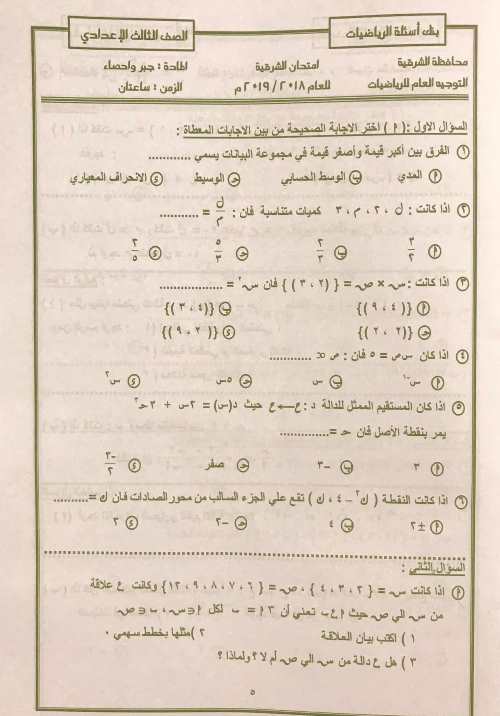 بنك أسئلة الرياضيات
الصف الثالث الإعدادي
محافظة الشرقية
امتحان الشرقية
المادة : جبر واحصاء
التوجيه العام للرياضيات
للعام ٢٠١٨ / ٢٠١٩ م
الزمن : ساعتان
السؤال الاول : ( أ ) اختر الاجابة الصحيحة من بين الاجابات المعطاة :
١ الفرق بين أكبر قيمة وأصغر قيمة في مجموعة البيانات يسمي ............
أ المدي ب الوسط الحسابي ج الوسيط د الانحراف المعياري
٢ اذا كانت : ل ، ٢ ، م ، ٣ كميات متناسبة فان : ل/م = ...........
أ ٣/٢ ب ٢/٣ ج ٥/٣ د ٢/٥
٣ اذا كانت : س × ص = { (٢ ، ٣ ) } فان س٢ = ...................
أ {( ٤ ، ٩ )} ب {(٤ ، ٣ )}
ج {(٢ ، ٢ )} د {( ٢ ، ٩ )}
٤ اذا كان س ص = ٥ فان : ص ∝ ............
أ س-١ ب س ج ٥س د س٢
٥ اذا كان المستقيم الممثل للدالة د : ع ← ع حيث د(س) = ٢س + ٣ حـ٢
يمر بنقطة الأصل فان حـ =..............
أ ٣ ب -٣ ج صفر د -٣/٢
٦ اذا كانت النقطة ( ك٢ - ٤ ، ك ) تقع علي الجزء السالب من محور الصادات فان ك =..........
أ ±٢ ب ٤ ج -٢ د ٢
السؤال الثاني :
أ اذا كانت س = { ٢ ، ٣ ، ٤ } ، ص = { ٦ ، ٧ ، ٨ ، ٩ ، ١٢ } وكانت ع علاقة
من س الي ص حيث أ ع ب تعني أن ٣ أ = ب لكل أ ∈ س ، ب ∈ ص
١ ) اكتب بيان العلاقة ٢ ) مثلها بخطط سهمي .
٣ ) هل ع دالة من س الي ص أم لا ؟ ولماذا ؟
٥